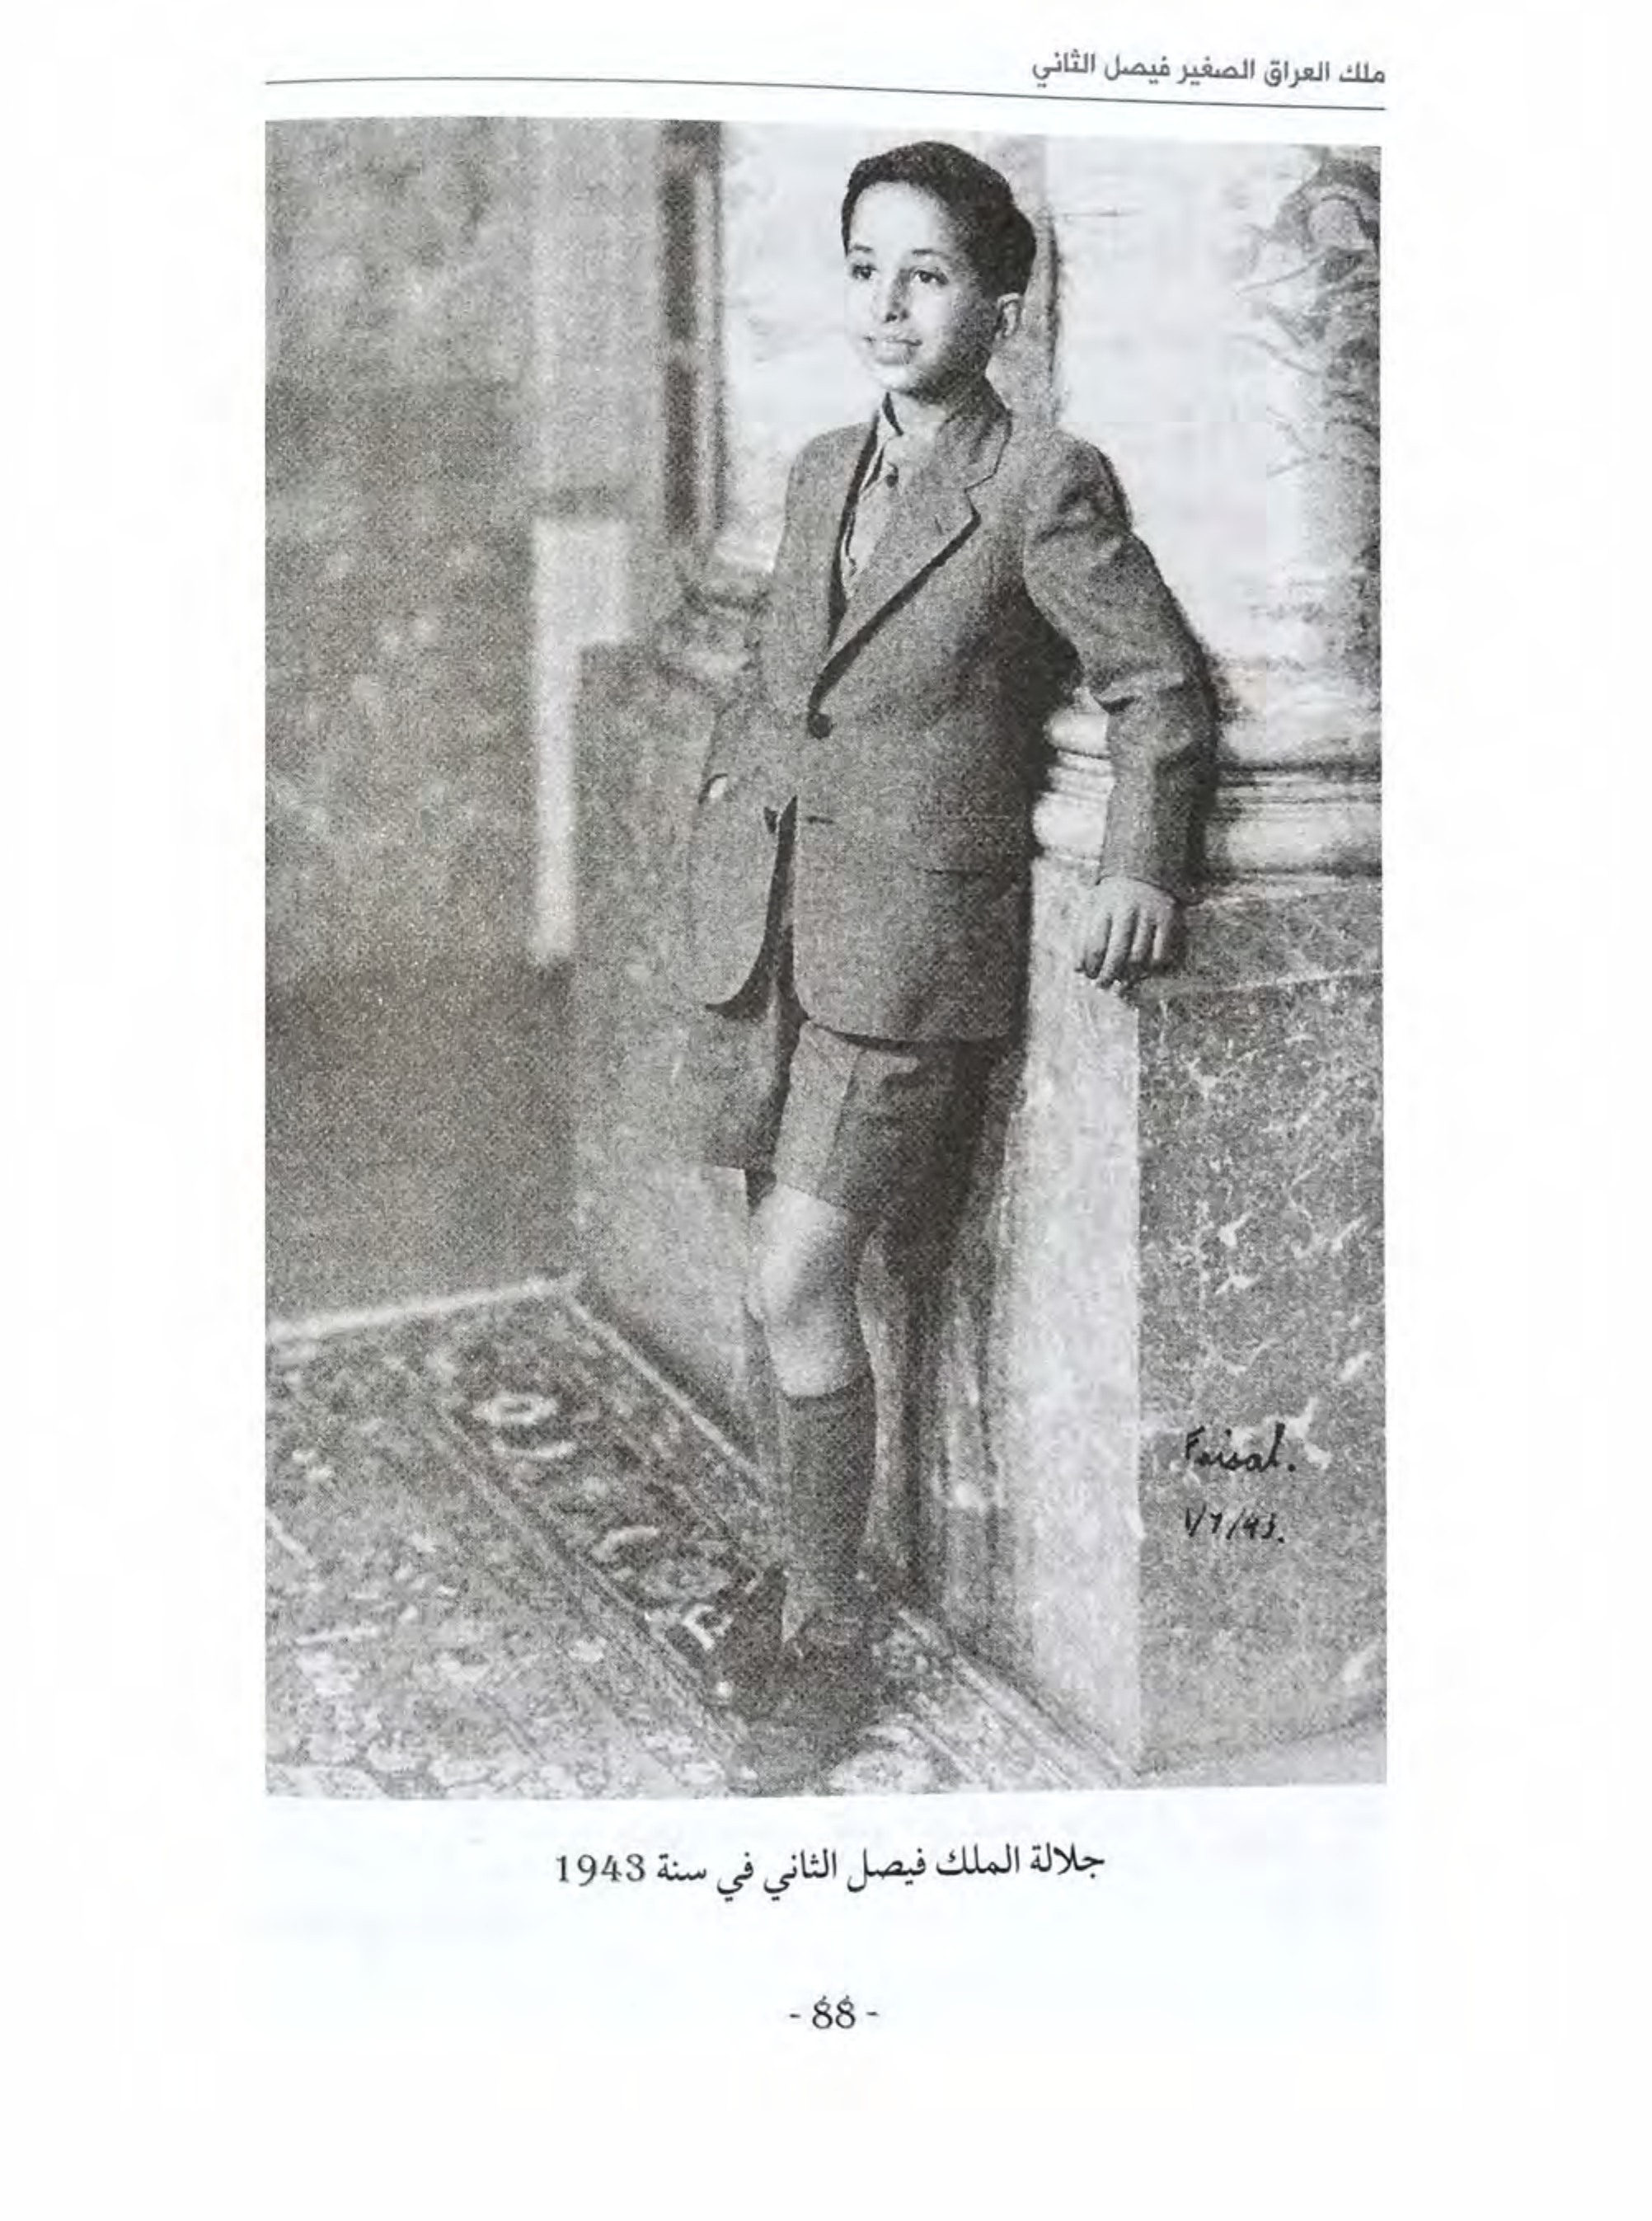 ملك العراق الصغير فيصل الثاني
Faisal.
1/7/43.
جلالة الملك فيصل الثاني في سنة 1943
- 88 -